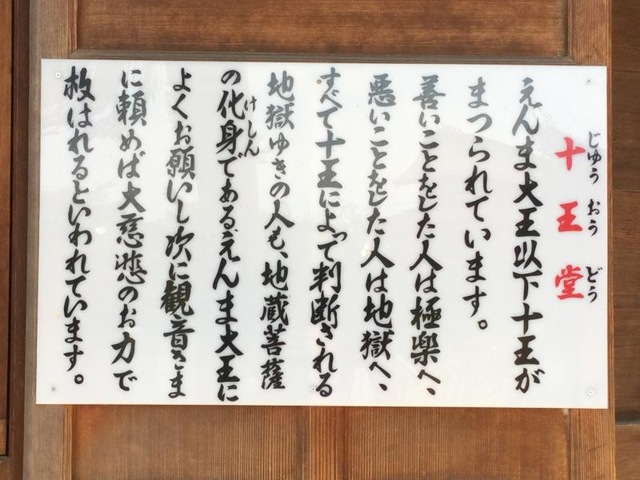 じゅう おう どう
十王堂
えんま大王以下十王が
まつられています。
善いことをした人は極楽へ、
悪いことをした人は地獄へ、
すべて十王によって判断される
地獄ゆきの人も、地蔵菩薩
けしん
の化身であるえんま大王に
よくお願いし次に観音さま
に頼めば大慈悲のお力で
救はれるといわれています。